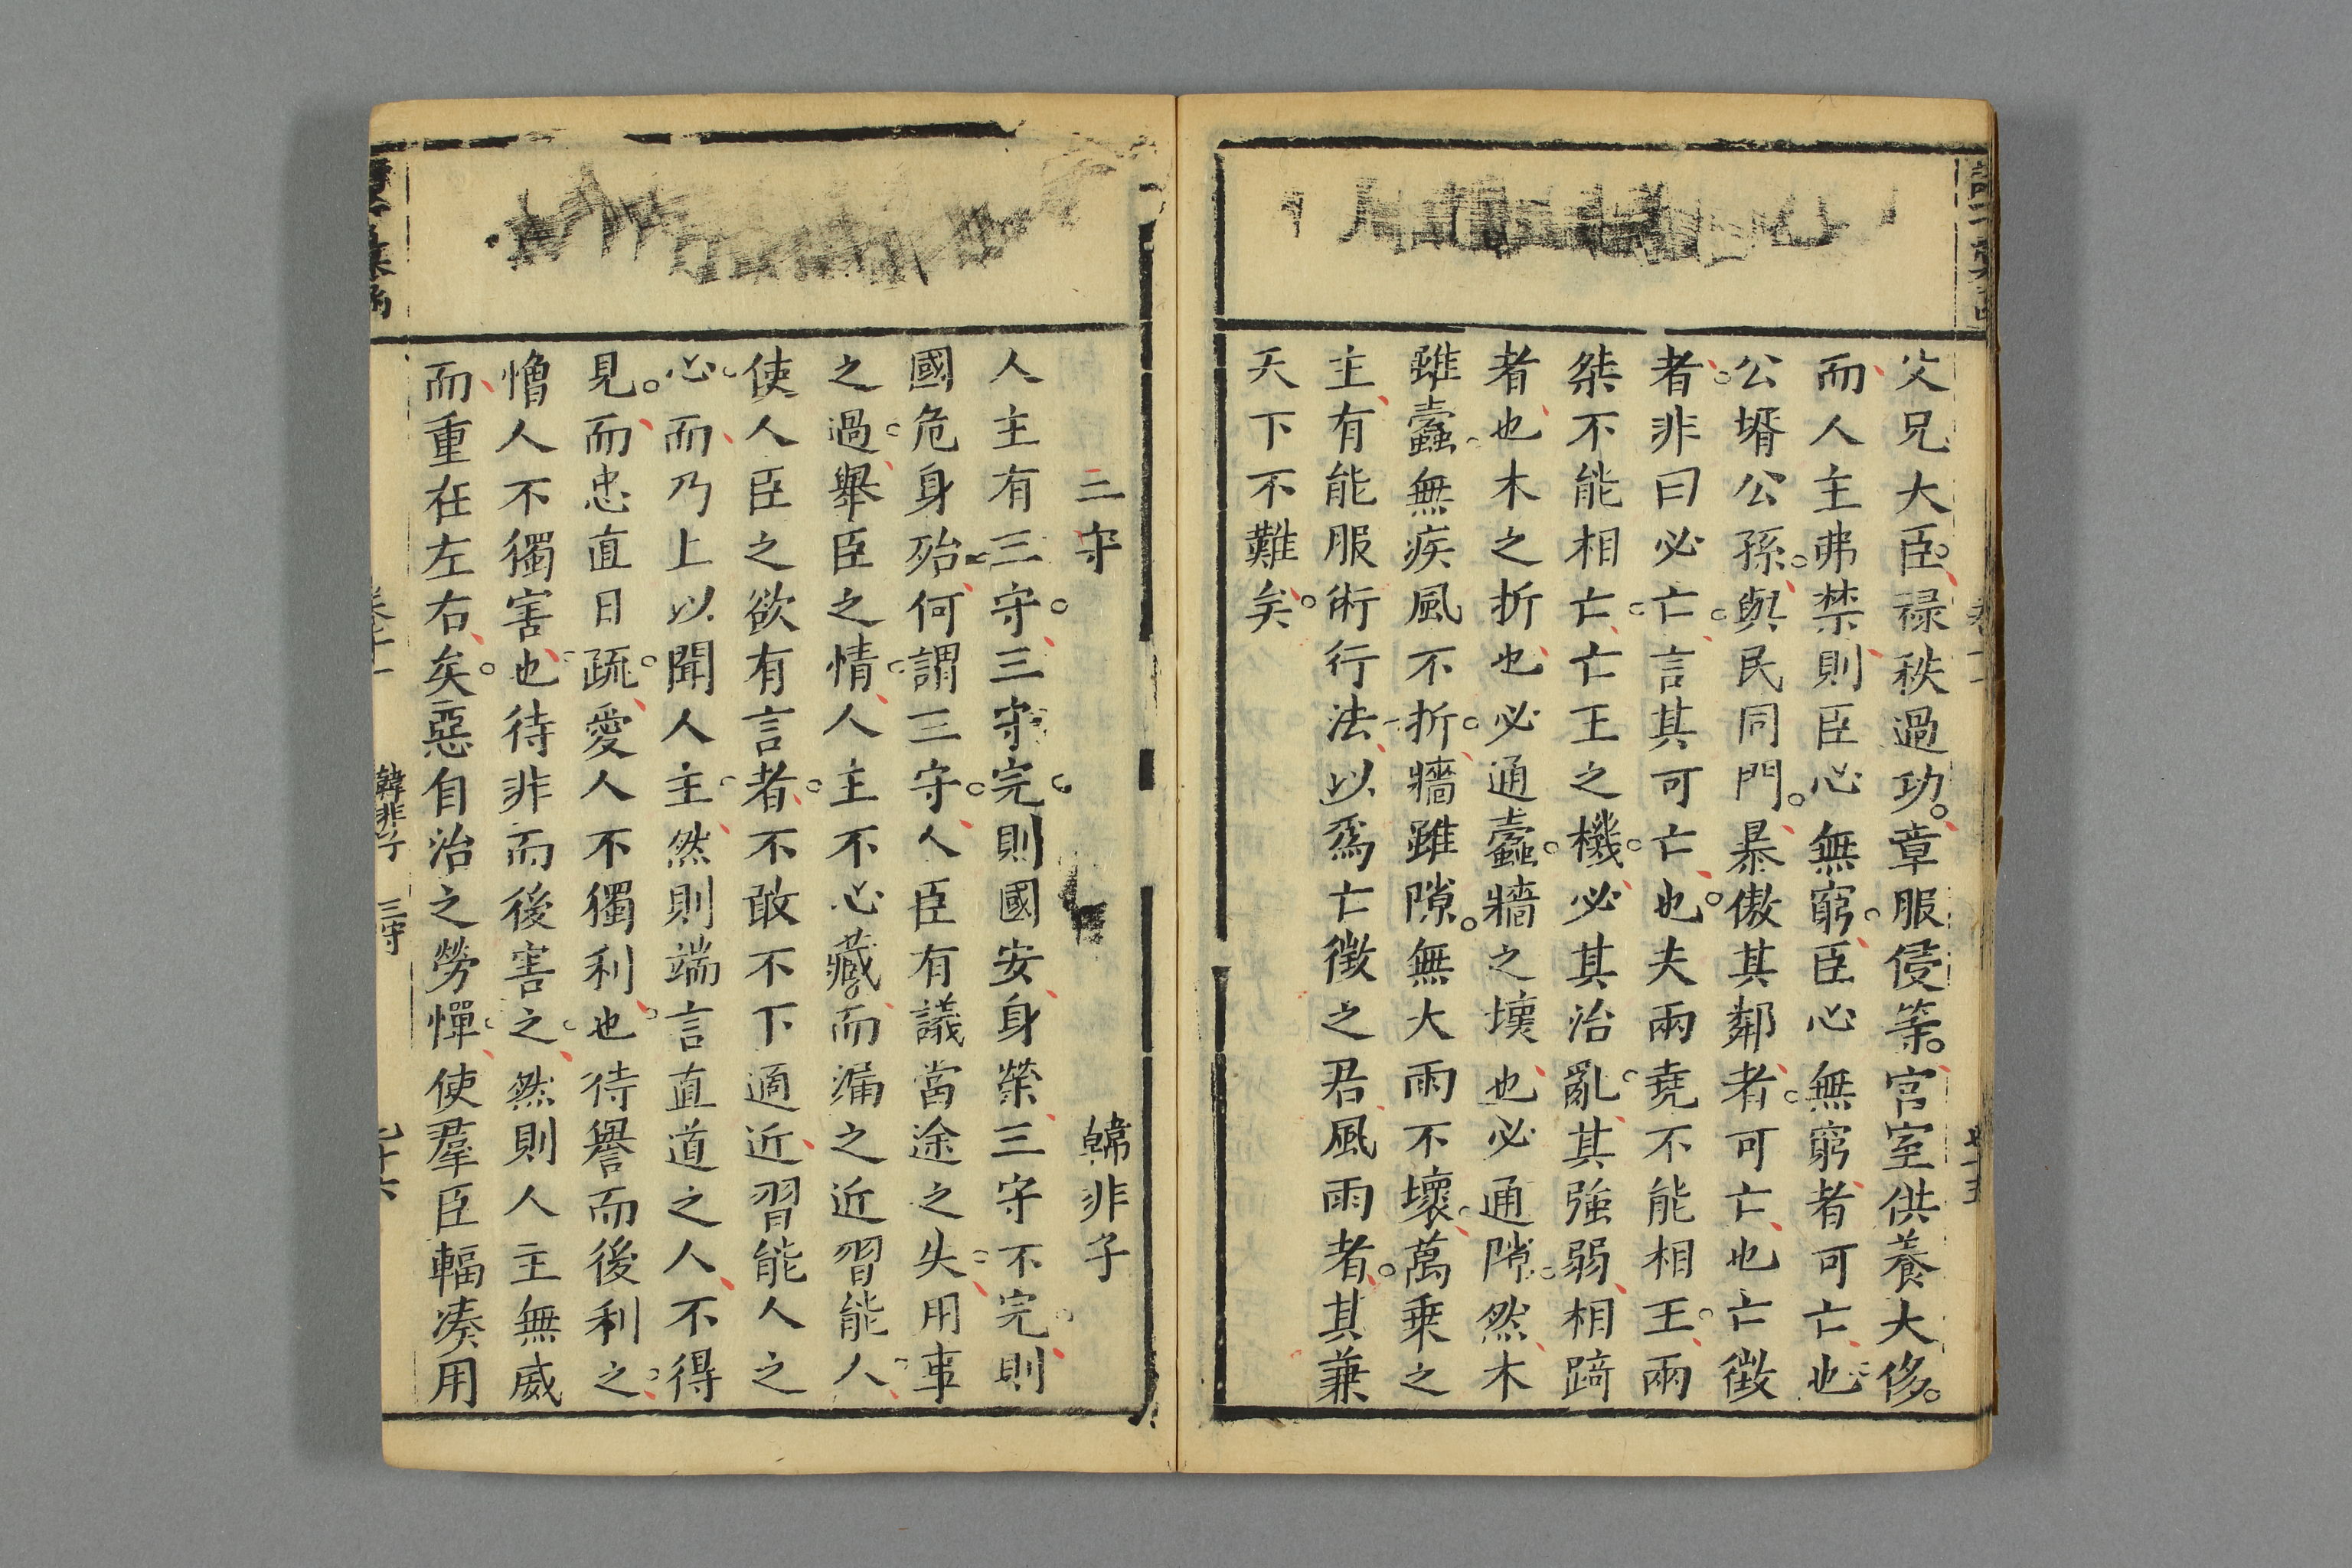 父兄大臣祿秩過功章服侵等宮室供養大侈
而人主弗禁則臣心無窮臣心無窮者可亡也
公壻公孫與民同門暴傲其鄰者可亡也亡徵
者非曰必亡言其可亡也夫兩堯不能相王兩
桀不能相亡亡王之機必其治亂其強弱相踦
者也木之折也必通蠹牆之壞也必通隙然木
雖蠹無疾風不折牆雖隙無大雨不壞萬乗之
主有能服術行法以爲亡徵之君風雨者其兼
天下不難矣
三守 韓非子
人主有三守三守完則國安身榮三守不完則
國危身殆何謂三守人臣有議當途之失用事
之過舉臣之情人主不心藏而漏之近習能人
使人臣之欲有言者不敢不下適近習能人之
心而乃上以聞人主然則端言直道之人不得
見而忠直日疏愛人不獨利也待譽而後利之
憎人不獨害也待非而後害之然則人主無威
而重在左右矣惡自治之勞憚使羣臣輻湊用
韓非子 三守